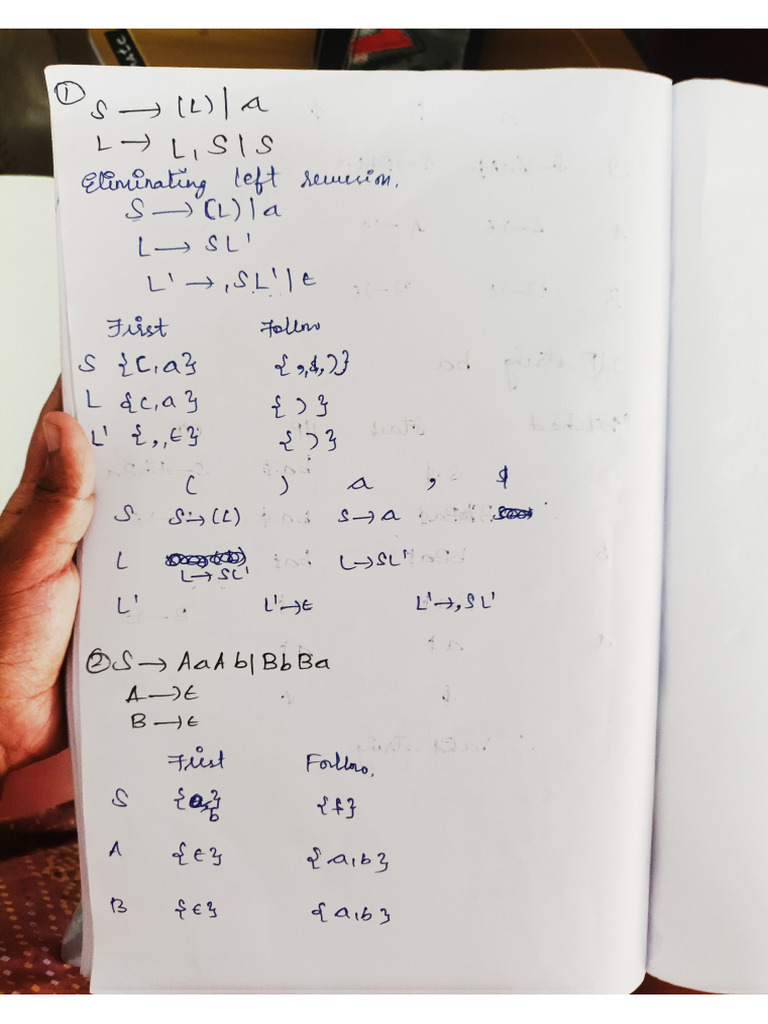 ① S → (L) | a
L → L, S | S
Eliminating left recursion.
S → (L) | a
L → SL'
L' → , SL' | ε
First Follow
S {(, a} { , $, ) }
L {(, a} { ) }
L' { , , ε} { ) }
( ) a , $
S S → (L) S → a
L L → SL' L → SL'
L' L' → ε L' → , SL'
② S → AaAb | BbBa
A → ε
B → ε
First Follow.
S {a, b} {$}
A {ε} {a, b}
B {ε} {a, b}